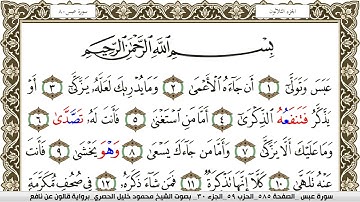 الجزء الثلاثون
سورة عبس ٨٠
بِسْمِ اللَّهِ الرَّحْمَٰنِ الرَّحِيمِ
عَبَسَ وَتَوَلَّىٰ ١ أَن جَاءَهُ الْأَعْمَىٰ ٢ وَمَا يُدْرِيكَ لَعَلَّهُ يَزَّكَّىٰ ٣ أَوْ
يَذَّكَّرُ فَتَنفَعُهُ الذِّكْرَىٰ ٤ أَمَّا مَنِ اسْتَغْنَىٰ ٥ فَأَنتَ لَهُ تَصَّدَّىٰ ٦
وَمَا عَلَيْكَ أَلَّا يَزَّكَّىٰ ٧ وَأَمَّا مَن جَاءَكَ يَسْعَىٰ ٨ وَهْوَ يَخْشَىٰ ٩ فَأَنتَ
عَنْهُ تَلَهَّىٰ ١٠ كَلَّا إِنَّهَا تَذْكِرَةٌ ١١ فَمَن شَاءَ ذَكَرَهُ ١٢ فِي صُحُفٍ مُّكَرَّمَةٍ
سورة عبس - الصفحة ٥٨٥ - الحزب ٥٩ - الجزء ٣٠ - بصوت الشيخ محمود خليل الحصري - برواية قالون عن نافع